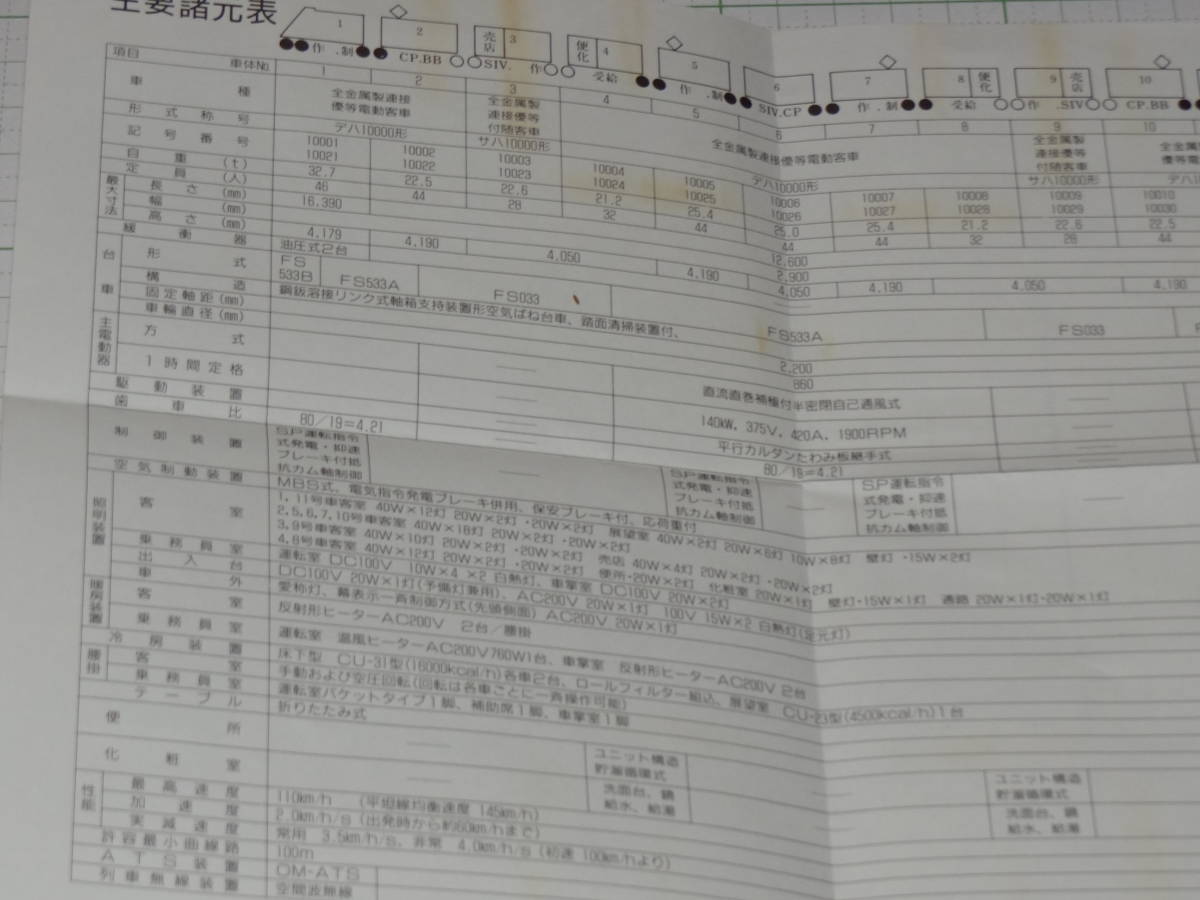 主要諸元表
1 2 売店 3 便化 4 5 6 7 8 便化 9 売店 10
作 .制 CP.BB SIV. 作 受給 作 .制 SIV.CP 作 .制 受給 作 .SIV CP.BB
項目 車体No. 1 2 3 4 5 6 7 8 9 10
車種 全金属製連接優等電動客車 全金属製連接優等付随客車 全金属製連接優等電動客車 全金属製連接優等付随客車
形式称号 デハ10000形 サハ10000形 デハ10000形 サハ10000形
記号番号 10001 10002 10003 10004 10005 10006 10007 10008 10009 10010
10021 10022 10023 10024 10025 10026 10027 10028 10029 10030
自重(t) 32.7 22.5 22.6 21.2 25.4 25.0 25.4 21.2 22.6 22.5
定員(人) 46 44 28 32 44 44 44 32 28 44
最大寸法 長さ(mm) 16,390 12,600
幅(mm) 2,900
高さ(mm) 4,179 4,190 4,050 4,190 4,050 4,190 4,050 4,190
緩衝器 油圧式2台
台車 形式 FS533B FS533A FS033 FS533A FS033
構造 鋼鈑溶接リンク式軸箱支持装置形空気ばね台車、踏面清掃装置付、
固定軸距(mm) 2,200
車輪直径(mm) 860
主電動器 方式 直流直巻補極付半密閉自己通風式
1時間定格 140kW, 375V, 420A, 1900RPM
駆動装置 平行カルダンたわみ板継手式
歯車比 80/19=4.21 80/19=4.21
制御装置 S.P運転指令式発電・抑速ブレーキ付抵抗カム軸制御 S.P運転指令式発電・抑速ブレーキ付抵抗カム軸制御 S.P運転指令式発電・抑速ブレーキ付抵抗カム軸制御
空気制動装置 MBS式、電気指令発電ブレーキ併用、保安ブレーキ付、応荷重付
照明装置 客室 1,11号車客室 40W×12灯 20W×2灯 ・20W×2灯 展望室 40W×2灯 20W×6灯 10W×8灯 壁灯 ・15W×2灯
2,5,6,7,10号車客室 40W×18灯 20W×2灯 ・20W×2灯
3,9号車客室 40W×10灯 20W×2灯 ・20W×2灯 売店 40W×4灯 20W×2灯 ・20W×2灯
4,8号車客室 40W×12灯 20W×2灯 ・20W×2灯 便所・20W×2灯 化粧室 20W×1灯 壁灯・15W×1灯 通路 20W×1灯・20W×1灯
乗務員室 運転室 DC100V 10W×4 ×2 白熱灯、車掌室 DC100V 20W×2灯
出入台 DC100V 20W×1灯(予備灯兼用)、AC200V 20W×1灯 100V 15W×2 白熱灯(足元灯)
車外 愛称灯、幕表示一斉制御方式(先頭側面) AC200V 20W×1灯
暖房装置 客室 反射形ヒーターAC200V 2台/腰掛
乗務員室 運転室 温風ヒーターAC200V760W1台、車掌室 反射形ヒーターAC200V 2台
冷房装置 床下型 CU-31型(16000kcal/h)各車2台、ロールフィルター組込、展望室 CU-23型(4500kcal/h)1台
腰掛 客室 手動および空圧回転(回転は各車ごとに一斉操作可能)
乗務員室 運転室バケットタイプ1脚、補助席1脚、車掌室1脚
テーブル 折りたたみ式
便所 ユニット構造貯溜循環式 ユニット構造貯溜循環式
化粧室 洗面台、鏡給水、給湯 洗面台、鏡給水、給湯
性能 最高速度 110km/h (平坦線均衡速度 145km/h)
加速度 2.0km/h/s(出発時から約60km/hまで)
実減速度 常用 3.5km/h/s、非常 4.0km/h/s(初速 100km/hより)
許容最小曲線路 100m
ATS装置 OM-ATS
列車無線装置 空間波無線